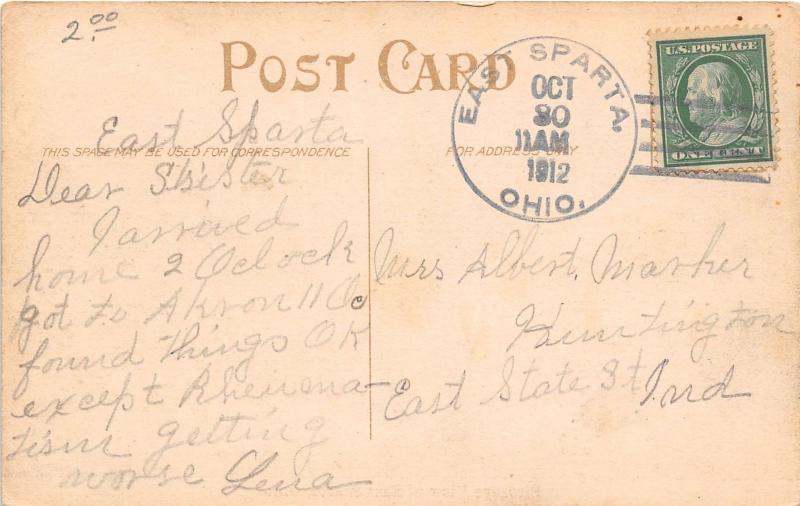 2.00
POST CARD
EAST SPARTA.
OCT
30
11 AM
1912
OHIO.
U.S. POSTAGE
ONE CENT
THIS SPACE MAY BE USED FOR CORRESPONDENCE
FOR ADDRESS ONLY
East Sparta
Dear Sister
I arrived
home 2 Oclock
got to Akron 11 Oc
found things OK
except Rheuma-
tism getting
worse Lena
Mrs Albert Marker
Huntington
East State St Ind